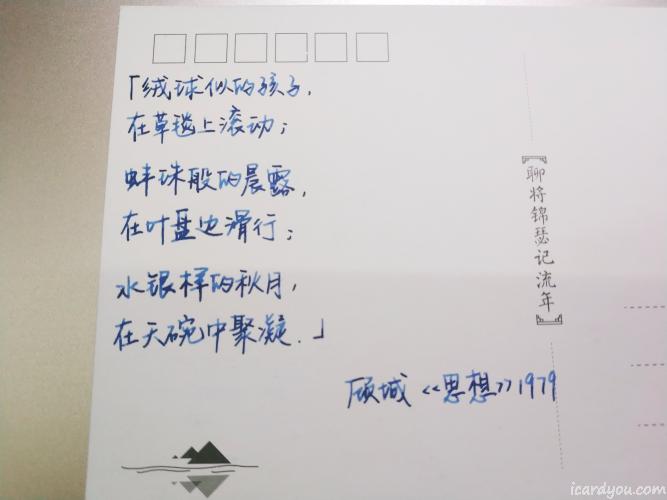 「绒球似的孩子，
在草毯上滚动；
蚌珠般的晨露，
在叶盘边滑行；
水银样的秋月，
在天碗中聚凝.」
顾城《思想》1979
【聊将锦瑟记流年】
icardyou.com